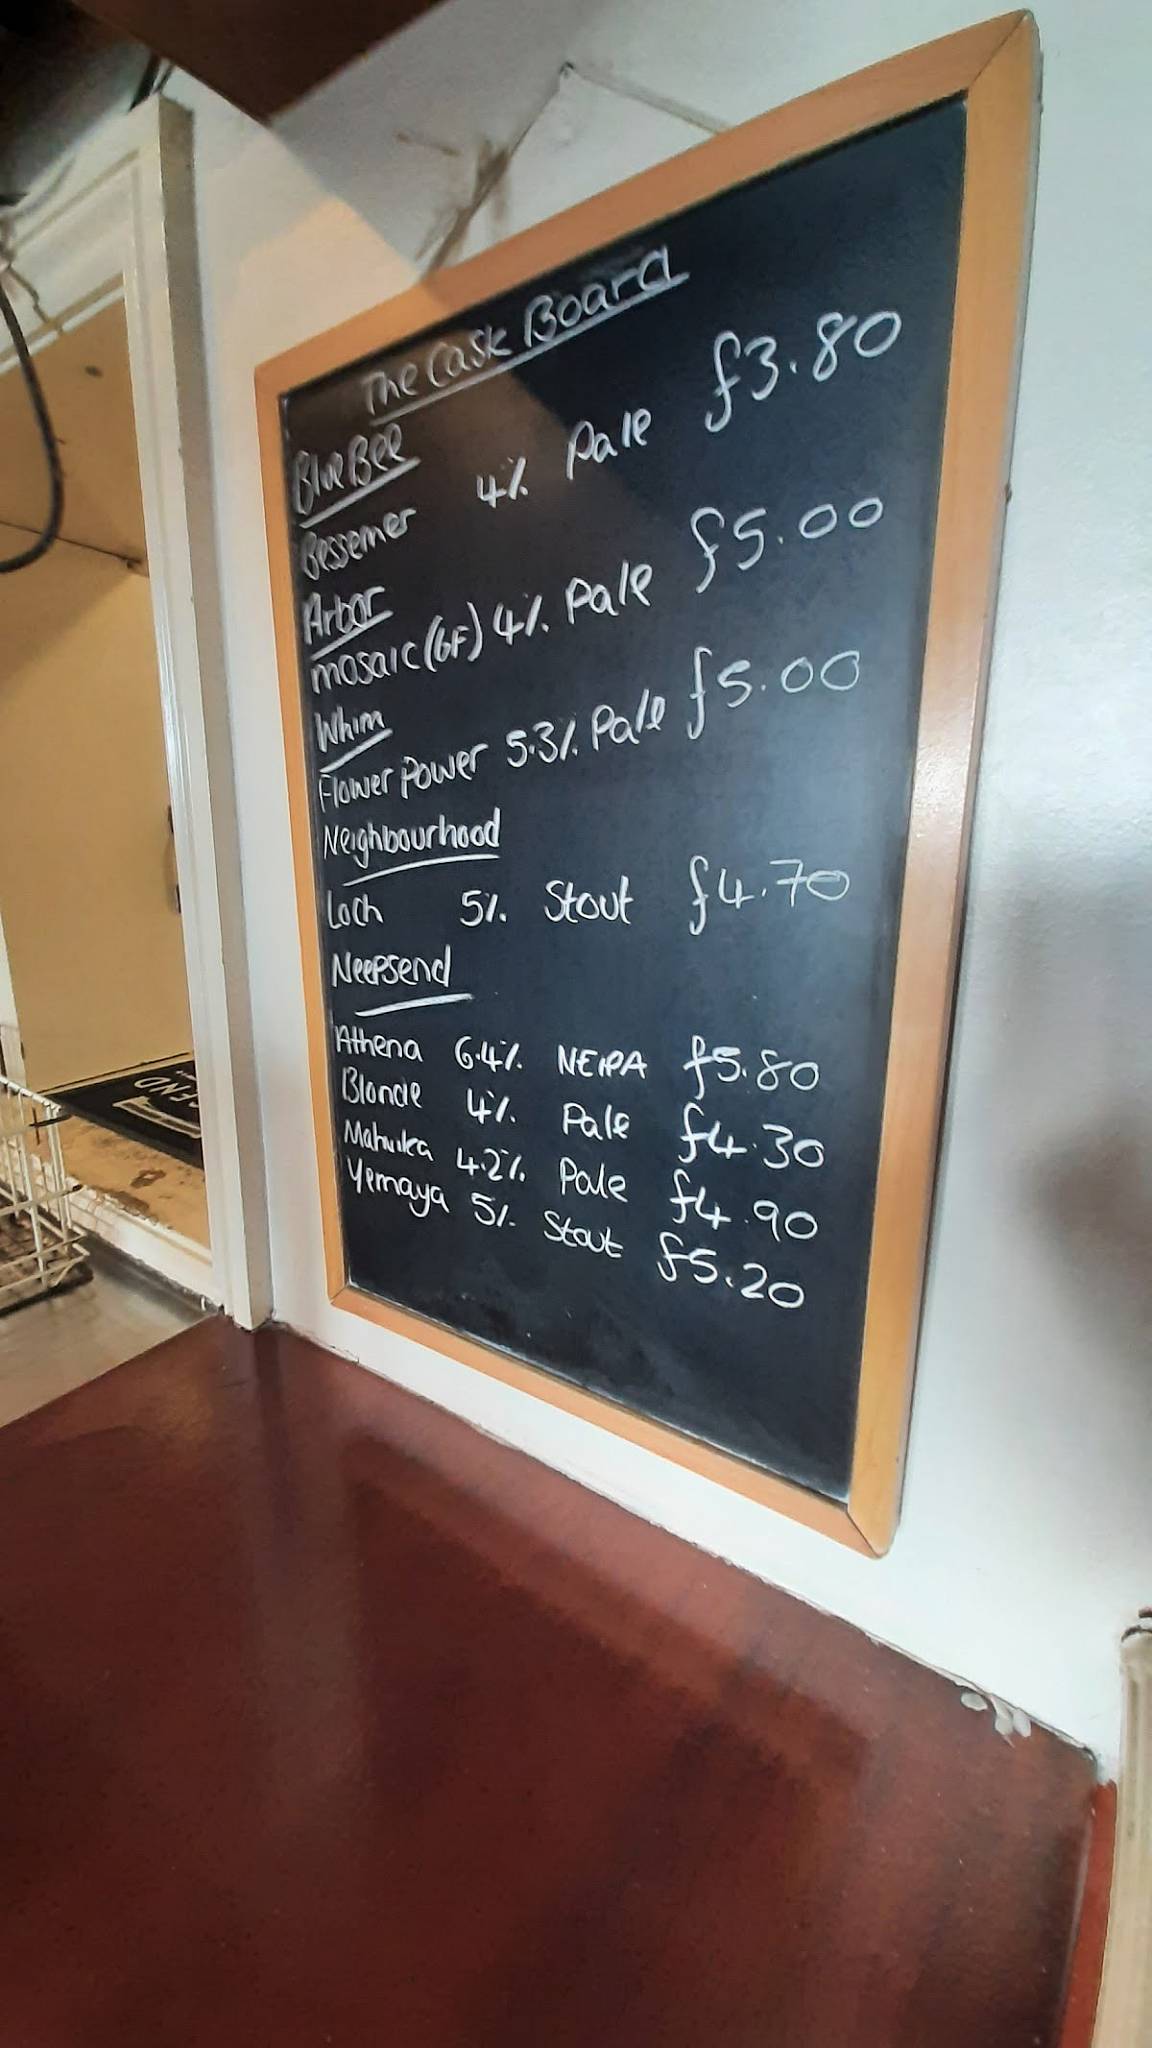 The Cask Board
Blue Bee
Bessemer 4% Pale £3.80
Arbor
Mosaic (GF) 4% Pale £5.00
Whim
Flower Power 5.3% Pale £5.00
Neighbourhood
Loch 5% Stout £4.70
Neepsend
Athena 6.4% NEIPA £5.80
Blonde 4% Pale £4.30
Mahuika 4.2% Pale £4.90
Yemaya 5% Stout £5.20